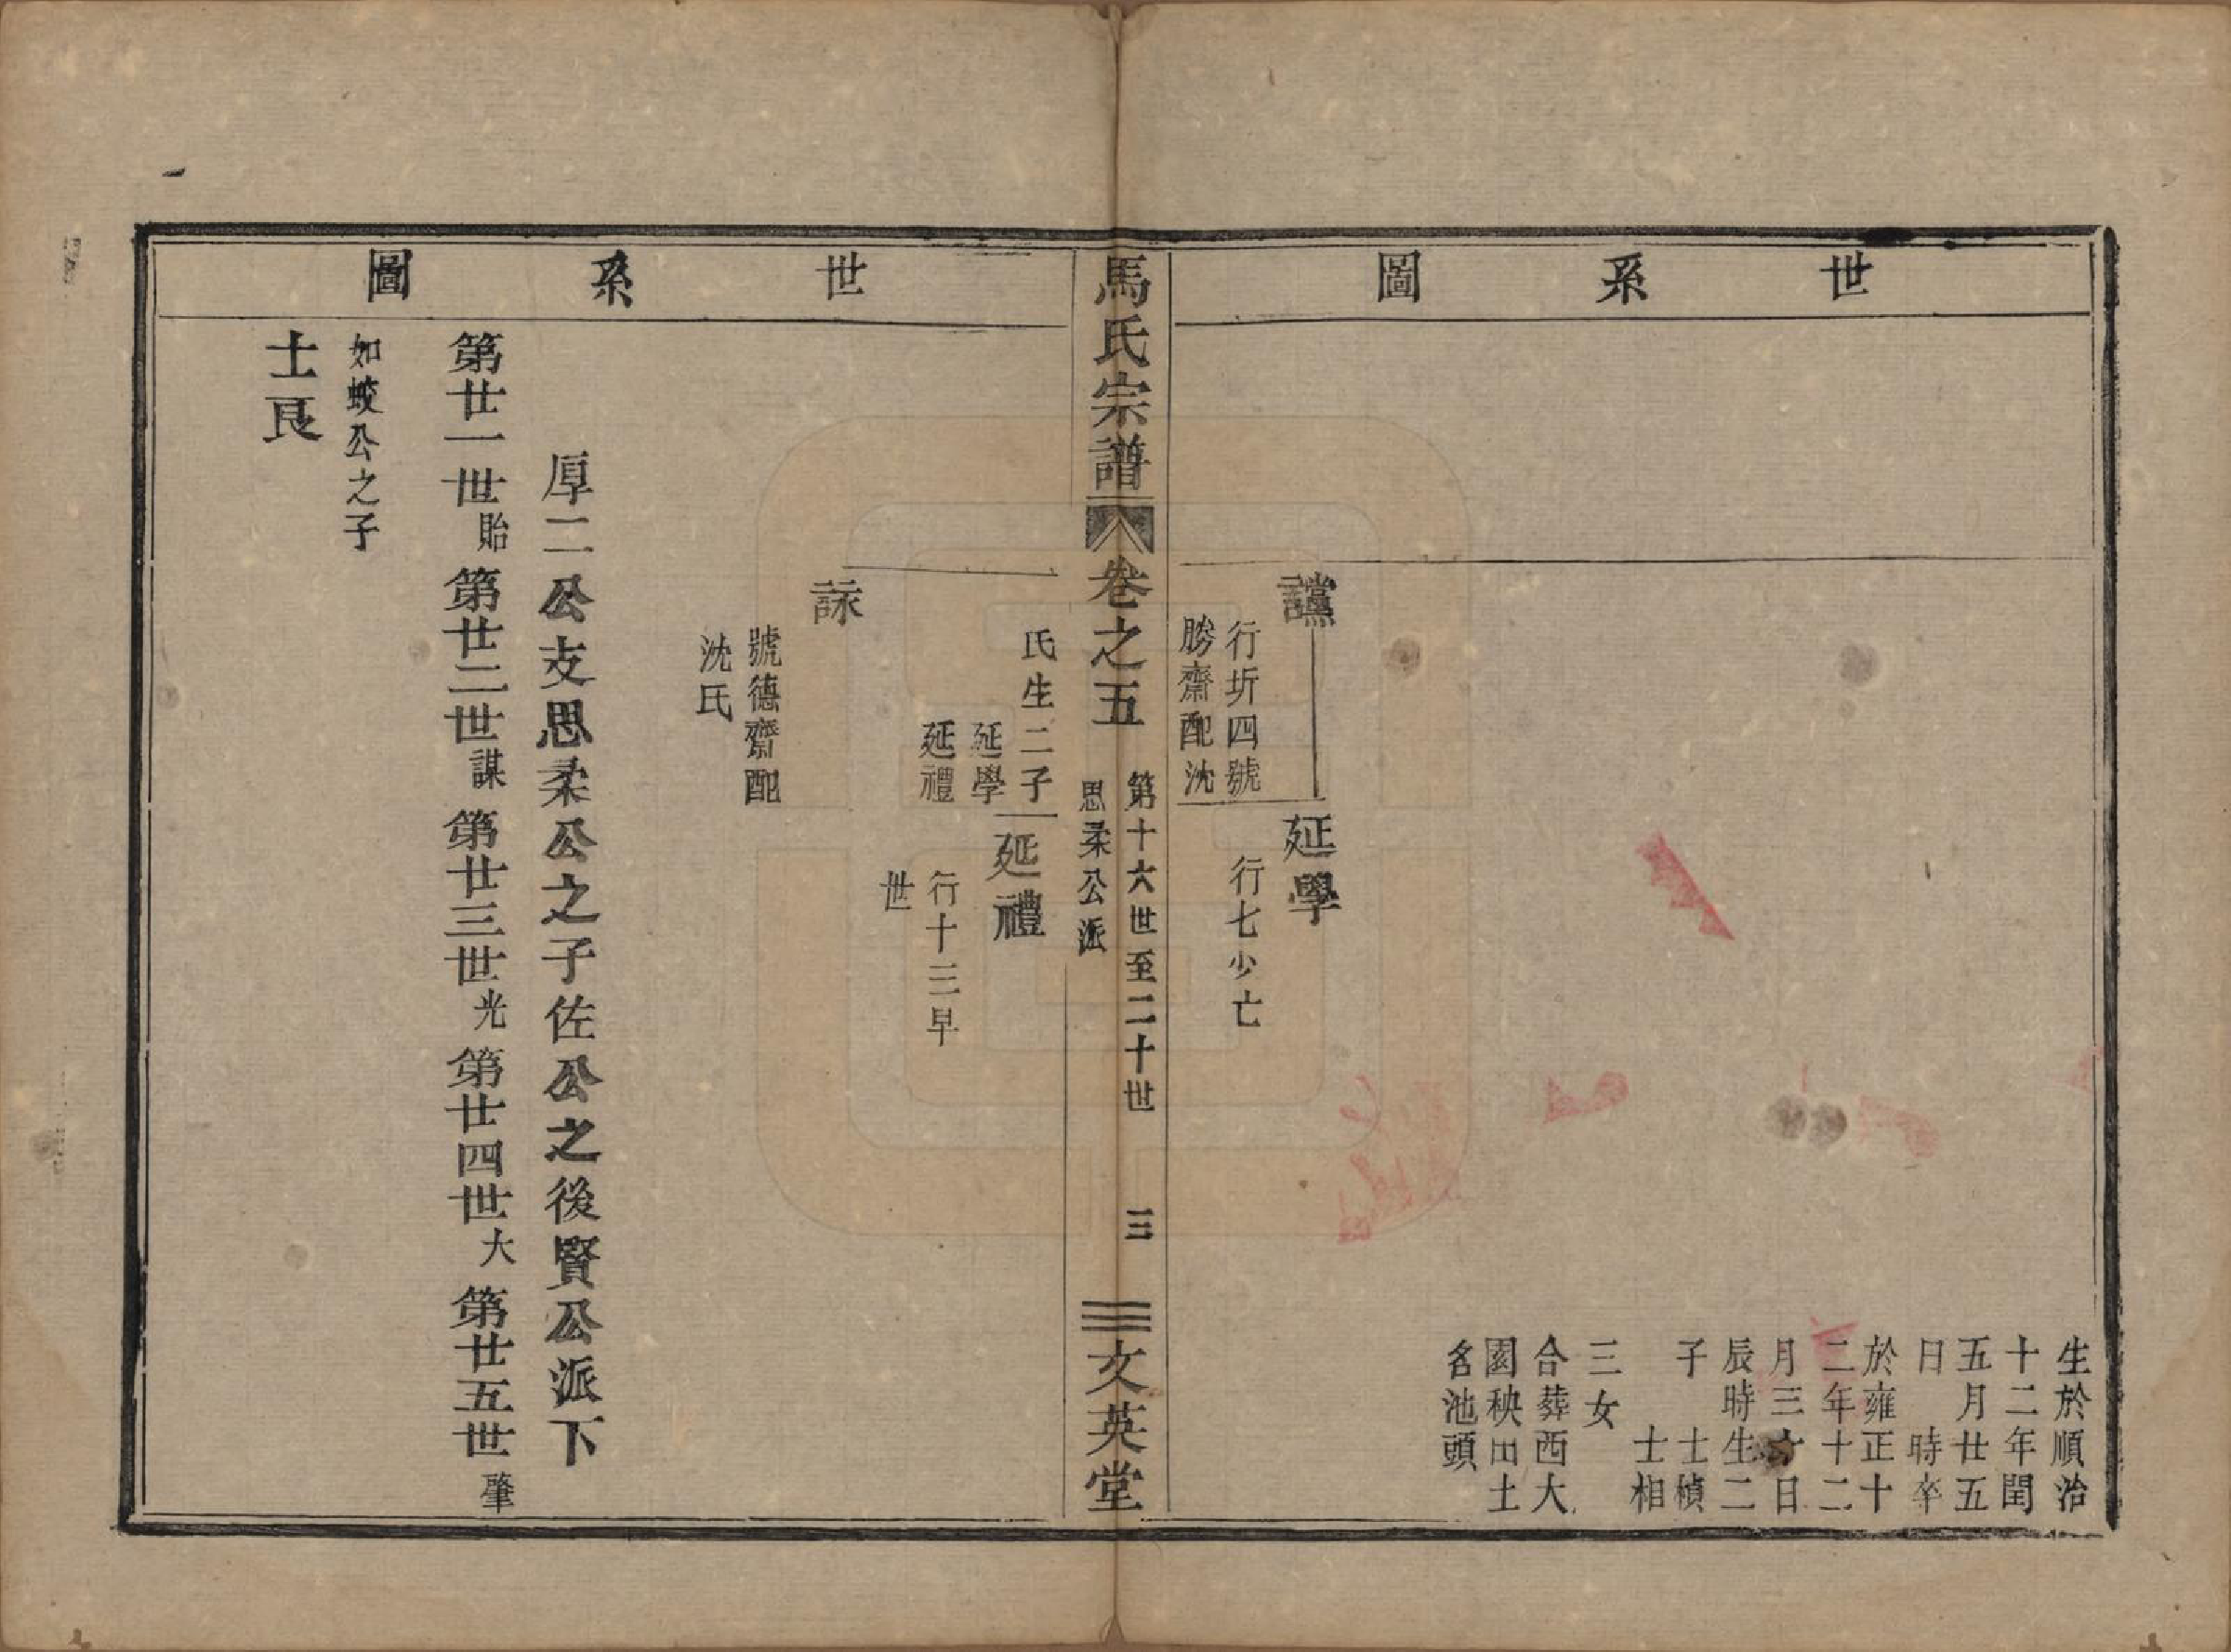 世系圖
生於順治
十二年閏
五月廿五
日 時卒
於雍正十
二年十二
月三十日
辰時生二
子 士楨
士相
三女
合葬西大
園秧田土
名池頭
讜
延學
行圻四號
勝齋配沈
行七少亡
馬氏宗譜 卷之五 第十六世至二十世 思柔公派 三 文英堂
世系圖
氏生二子
延學
延禮
延禮
行十三早
世
詠
號德齋配
沈氏
厚二公支思柔公之子佐公之後賢公派下
第廿一世貽 第廿二世謀 第廿三世光 第廿四世大 第廿五世肇
如蛟公之子
士良